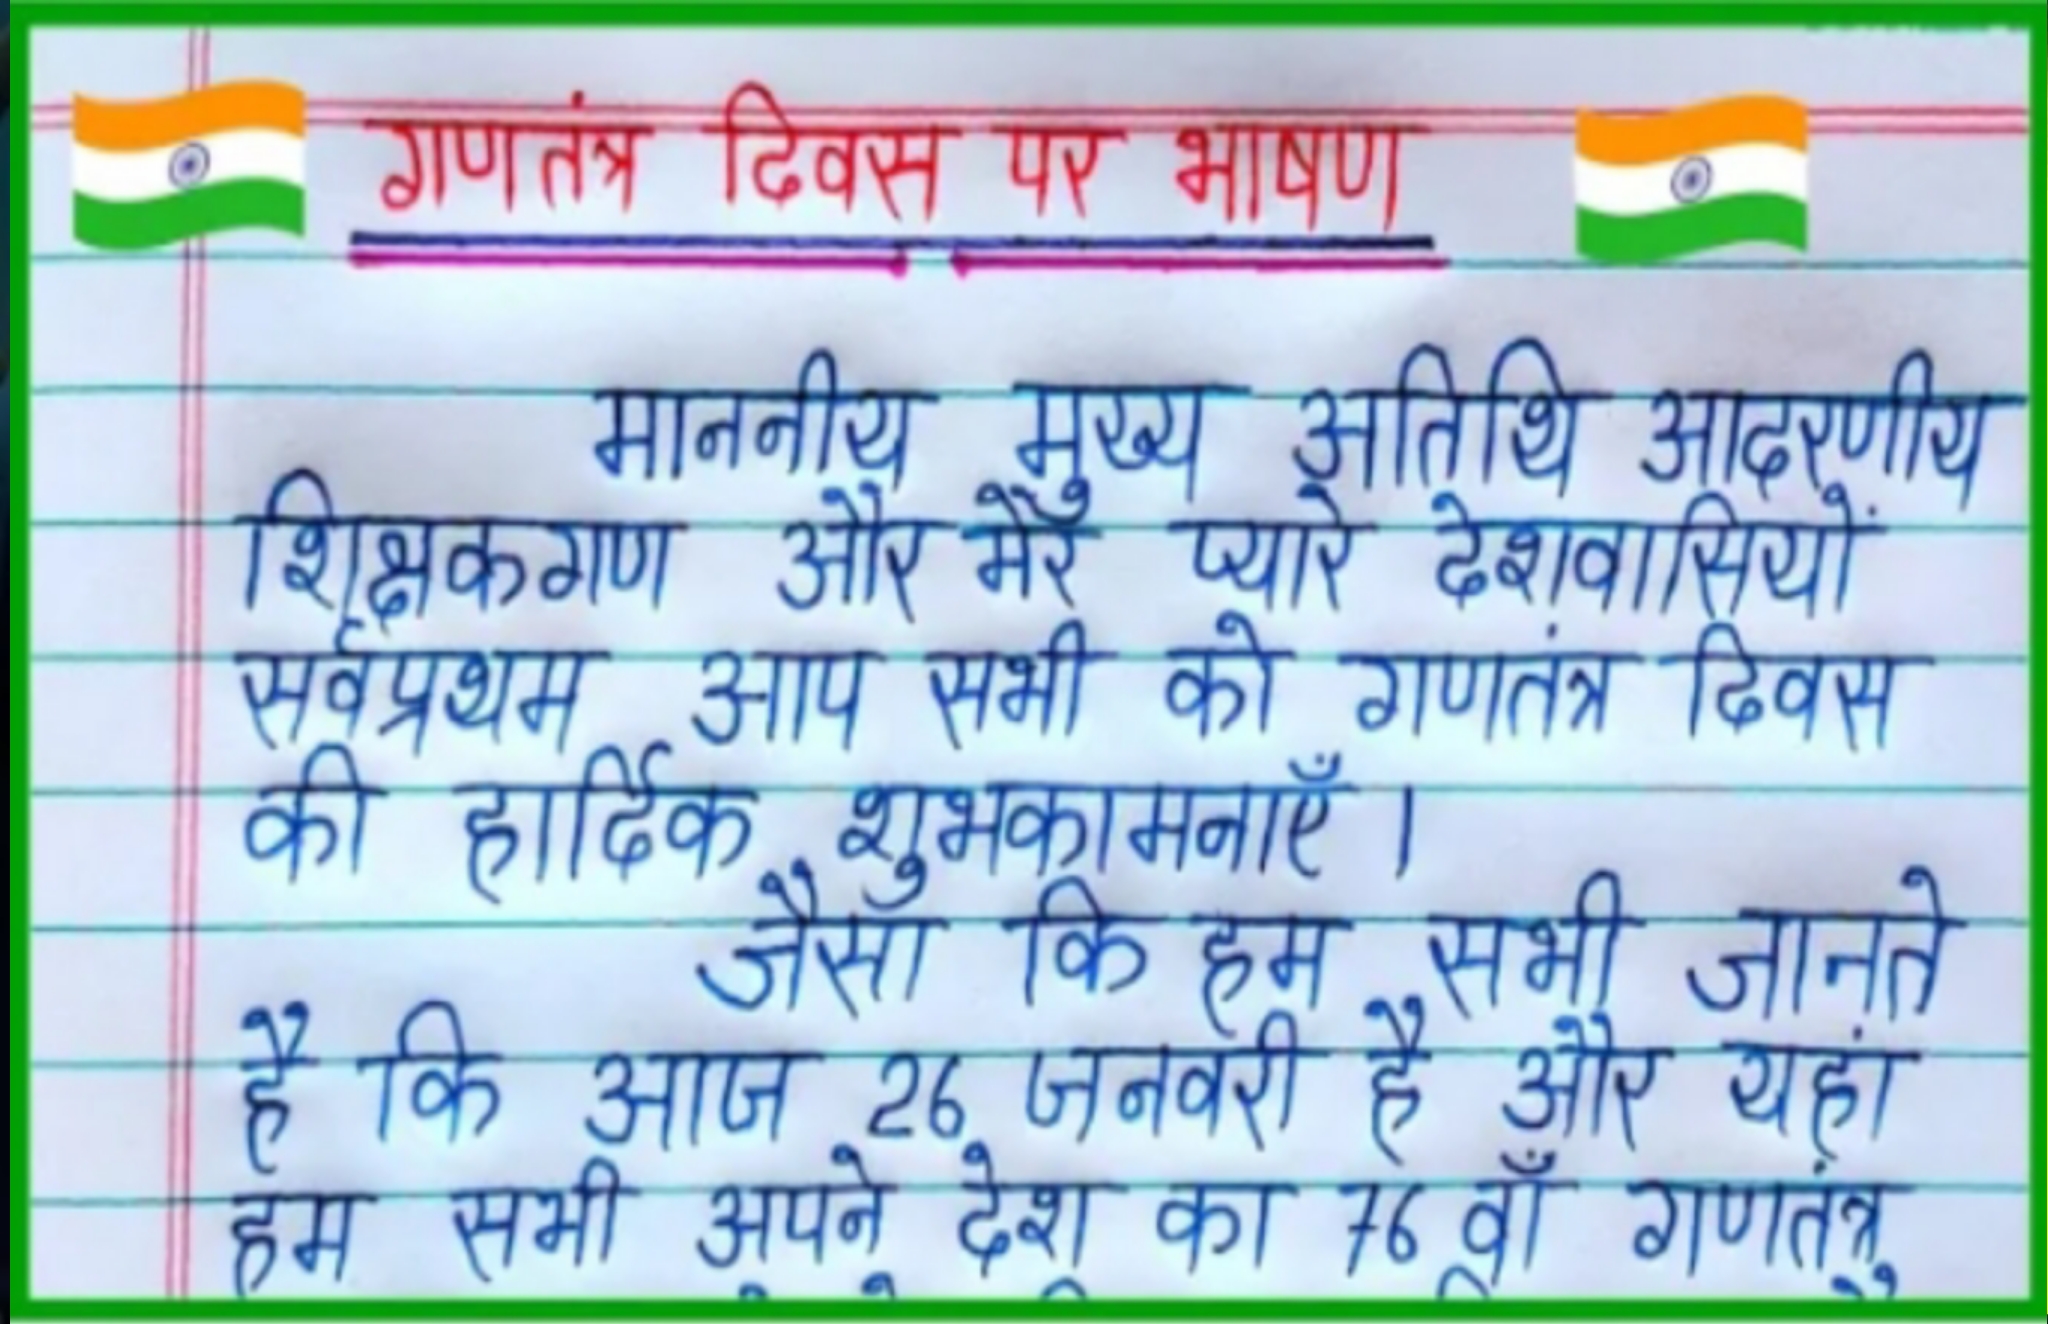 गणतंत्र दिवस पर भाषण
माननीय मुख्य अतिथि आदरणीय
शिक्षकगण और मेरे प्यारे देशवासियों
सर्वप्रथम आप सभी को गणतंत्र दिवस
की हार्दिक शुभकामनाएँ ।
जैसा कि हम सभी जानते
है कि आज 26 जनवरी है और यहां
हम सभी अपने देश का 76 वाँ गणतंत्र